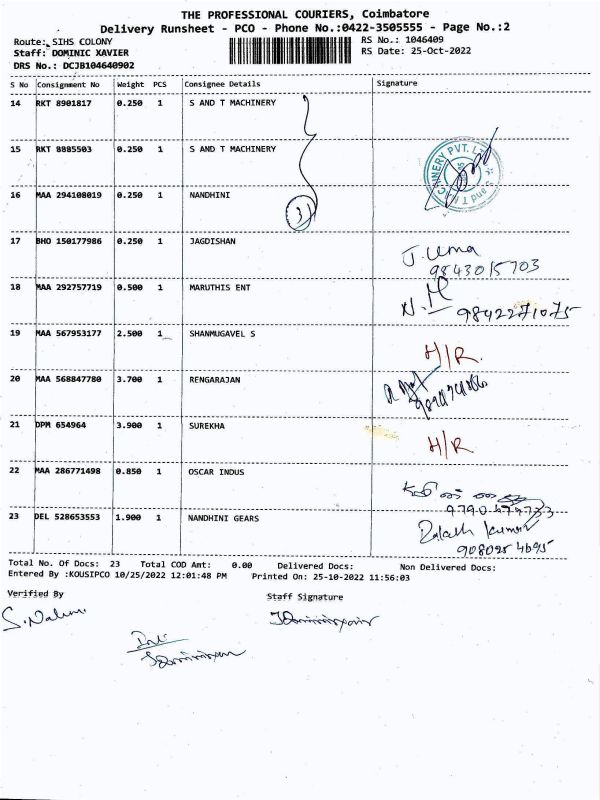 THE PROFESSIONAL COURIERS, Coimbatore
Delivery Runsheet - PCO - Phone No.:0422-3505555 - Page No.:2
Route: SIHS COLONY
RS No.: 1046409
Staff: DOMINIC XAVIER
RS Date: 25-Oct-2022
DRS No.: DCJB104640902
S No Consignment No Weight PCS Consignee Details Signature
14 RKT 8901817 0.250 1 S AND T MACHINERY
15 RKT 8885503 0.250 1 S AND T MACHINERY
16 MAA 294108019 0.250 1 NANDHINI
3
17 BHO 150177986 0.250 1 JAGDISHAN
J. Uma
9843015703
18 MAA 292757719 0.500 1 MARUTHIS ENT
N. M
9842271075
19 MAA 567953177 2.500 1 SHANMUGAVEL S
H/R.
20 MAA 568847780 3.700 1 RENGARAJAN
21 DPM 654964 3.900 1 SUREKHA
H/R
22 MAA 286771498 0.850 1 OSCAR INDUS
23 DEL 528653553 1.900 1 NANDHINI GEARS
Total No. Of Docs: 23 Total COD Amt: 0.00 Delivered Docs: Non Delivered Docs:
Entered By :KOUSIPCO 10/25/2022 12:01:48 PM Printed On: 25-10-2022 11:56:03
Verified By
Staff Signature